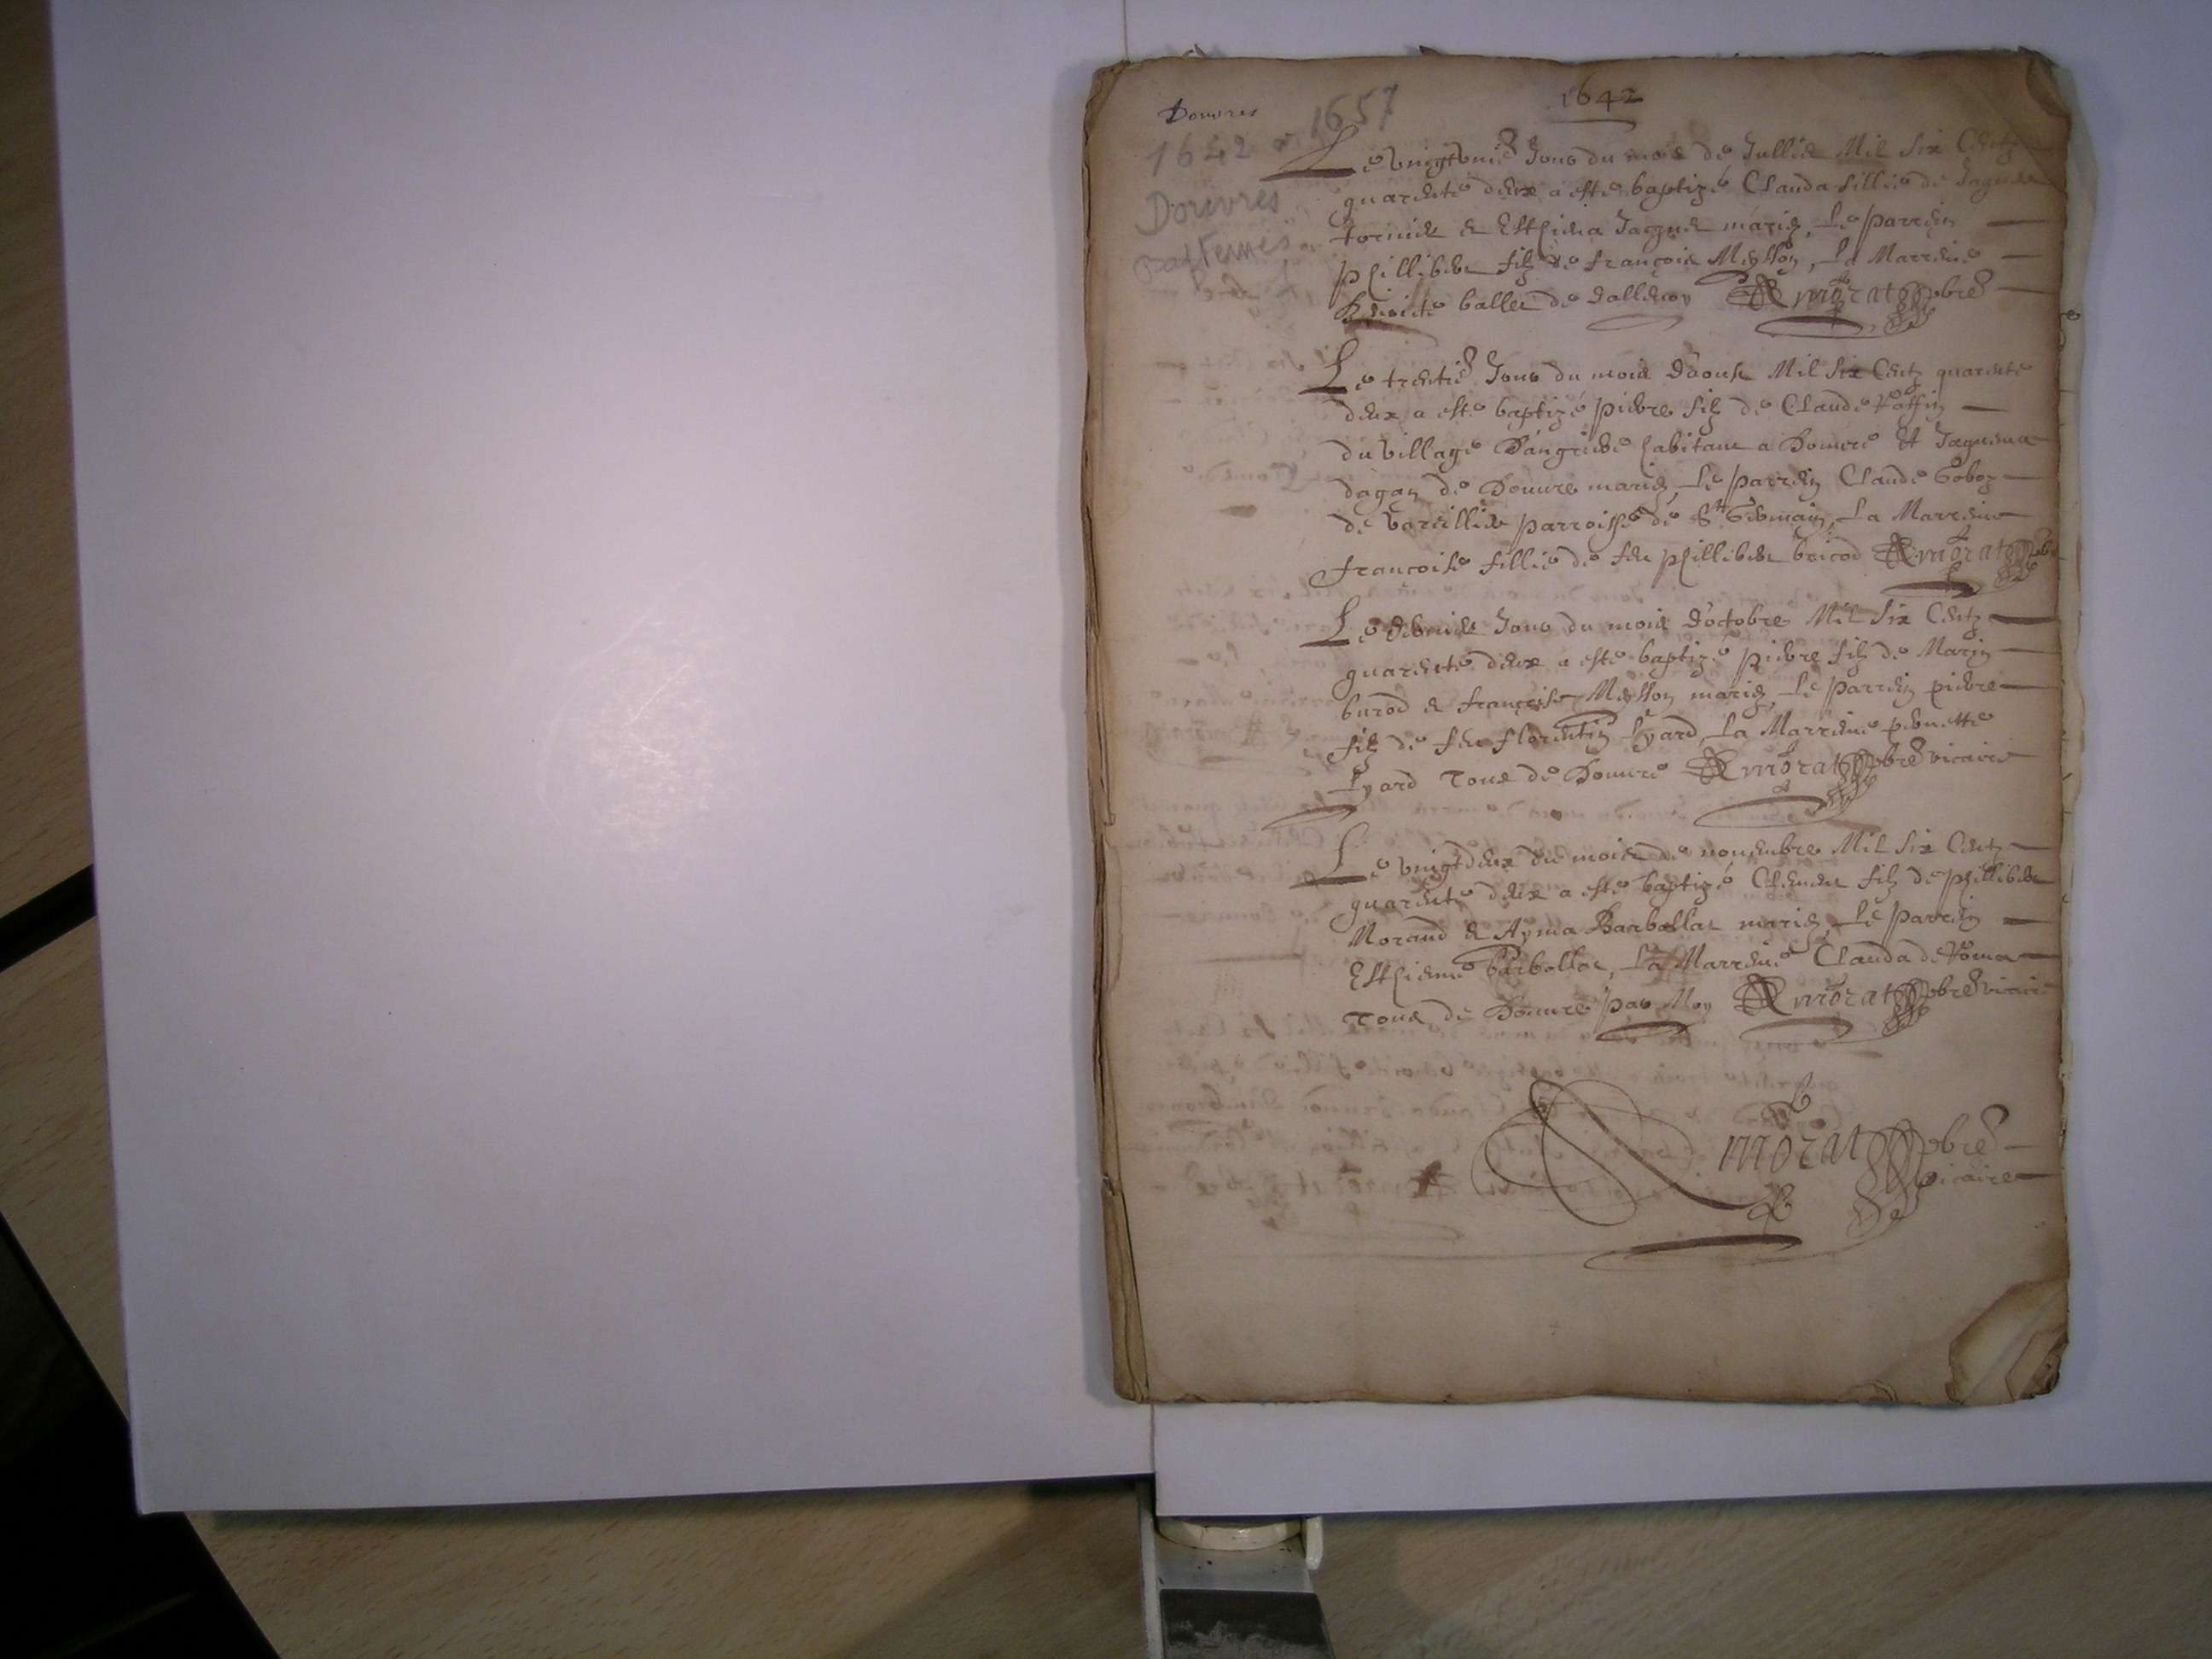 Douvres
1642 à 1657
Douvres
Baptemes
1642
Le vingtunie Jour du mois de Jullie Mil Six Centz
quarente deux a esté baptizé Clauda fillie de Jaques
tornier & Esthiena Jaques mariez, Le parrein
phillibert filz de françois Messon, La Marreine
Benoite ballet de Amorat pbre
Le trentie Jour du mois daoust Mil Six Centz quarente
deux a esté baptizé pierre filz de Claude
du village habitant a Douvre Et Jaquema
dagan de Douvre mariez, Le parrein Claude Goboz
de parroisse de St Germain, La Marreine
francoise fillie de feu phillibert bricod Amorat pbre
Le dernier Jour du mois doctobre Mil Six Centz
quarente deux a esté baptizé pierre filz de Marin
burod & françoise Messon mariez, Le parrein pierre
filz de feu florentin Lyard, La Marreine pernette
Lyard Tous de Douvre Amorat pbre vicaire
Le vingtdeux du mois de novembre Mil Six Centz
quarente deux a esté baptizé Clement filz de phillibert
Morand & Ayma Barbollat mariez, Le parrein
Esthienne barbollat, La Marreine Clauda de Roma
Tous de Douvre par Moy Amorat pbre vicaire
Amorat pbre
vicaire